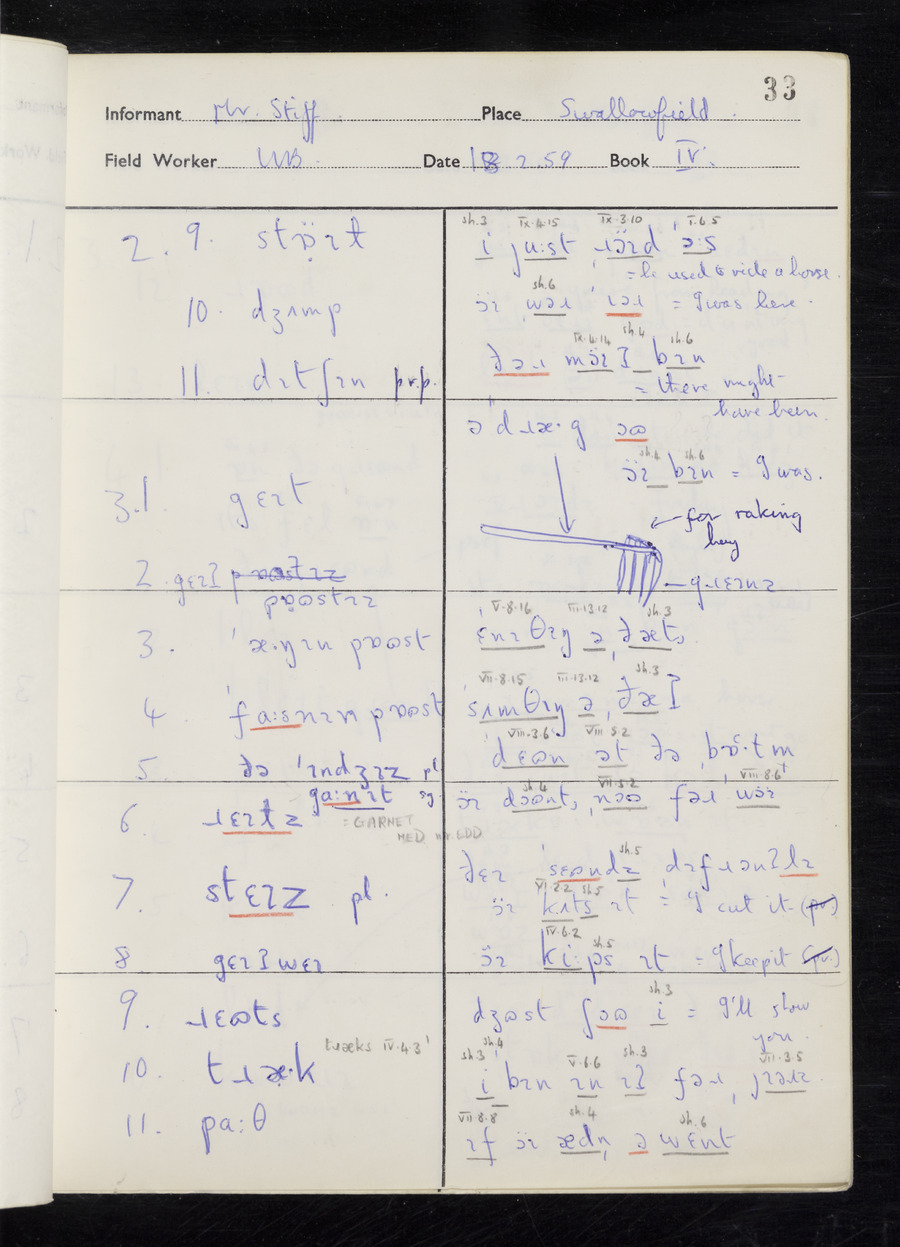 33
Informant Mr. Stiff Place Swallowfield
Field Worker WB Date 18 2.59 Book IV.
2. 9. stɒ̈ɪɫ
10. dʒʌmp
11. dɪtʃɪn pr.p.
3.1 gɛɪt
2. gɛɪʔ
pɒʊstɪz
3. ˈæ·ŋɪn pɒʊst
4. ˈfaːsnɪn pɒʊst
5. ðə ˈɪndʒɪz pl
gaːnɪt sg
= GARNET
6. ɹɛɪɫz
7. stɛɪz pl.
8 gɛɪʔwɛɪ
9. ɹɛʊts
10. tɹæ·k
tɹæks IV.4.3
11. pa:θ
sh.3 IX.4.15 IX.3.10 I.6.5
i juːst ɹɔ̈ɪd ɔːs
= he used to ride a horse.
sh.6
ɔ̈ɪ wəɹ ɪəɹ = I was here.
IX.4.14 sh.4 sh.6
ðəɹ mɔ̈ɪʔ bɪn
= there might
have been.
ə dɹæ·g ɔʊ
sh.4 sh.6
ɔ̈ɪ bɪn = I was.
for raking
hay
V.8.16 III.13.12 sh.3
ɛnɪθɪŋ ə ðæts
VII.8.15 III.13.12 sh.3
sʌmθɪŋ ə ðæʔ
VIII.3.6 VIII.5.2
dɛʊn ət ðə bɒ·tm
sh.4 VII.5.2 VIII.8.6
ɔ̈ɪ dɔʊnt nɔʊ fəɹ wɔ̈ɪ
sh.5
ðɛɪ sɛʊndz dɪfɹənʔlɪ
VI.2.2 sh.5
ɔ̈ɪ kʌts ɪt = I cut it (pr.)
IV.6.2 sh.5
ɔ̈ɪ kiːps ɪt = I keep it (pr.)
sh.3
dʒʊst ʃɔʊ i = I'll show
you.
sh.3 sh.4 V.6.6 sh.3 VII.3.5
i bɪn ɪn ɪʔ fəɹ jɪəɹz
VII.8.8 sh.4 sh.6
ɪf ɔ̈ɪ ædn, ə wɛnt